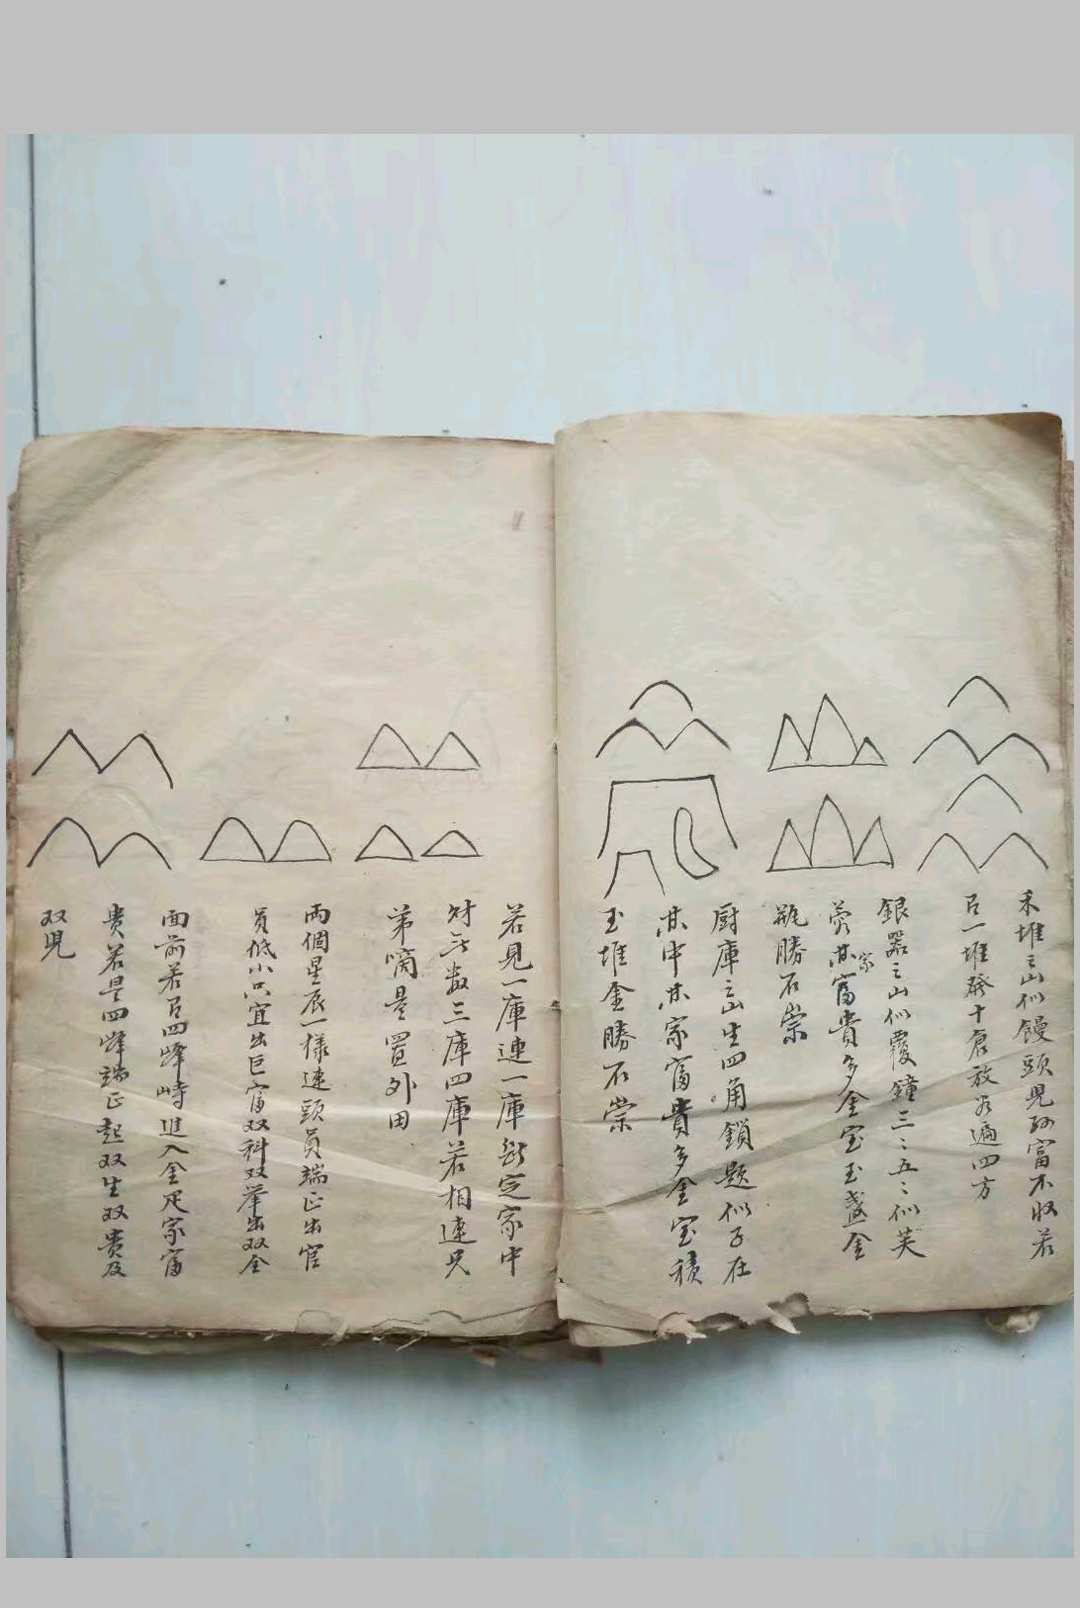 禾堆之山似饅頭見砂富不收若
呂一堆發十倉放谷遍四方
銀器之山似覆鐘三〻五〻似芙
蓉其家富貴多金宝玉盞金
瓶勝石崇
厨庫之山生四角鎖題似子在
其中其家富貴多金宝積
玉堆金勝石崇
若見一庫連一庫断定家中
财无数三庫四庫若相連只
弟嘀是置外田
兩個星辰一樣連頭員端正出官
員低小只宜出巨富双科双举出双全
面前若呂四峰峙進入金足家富
貴若是四峰端正起双生双贵及
双児